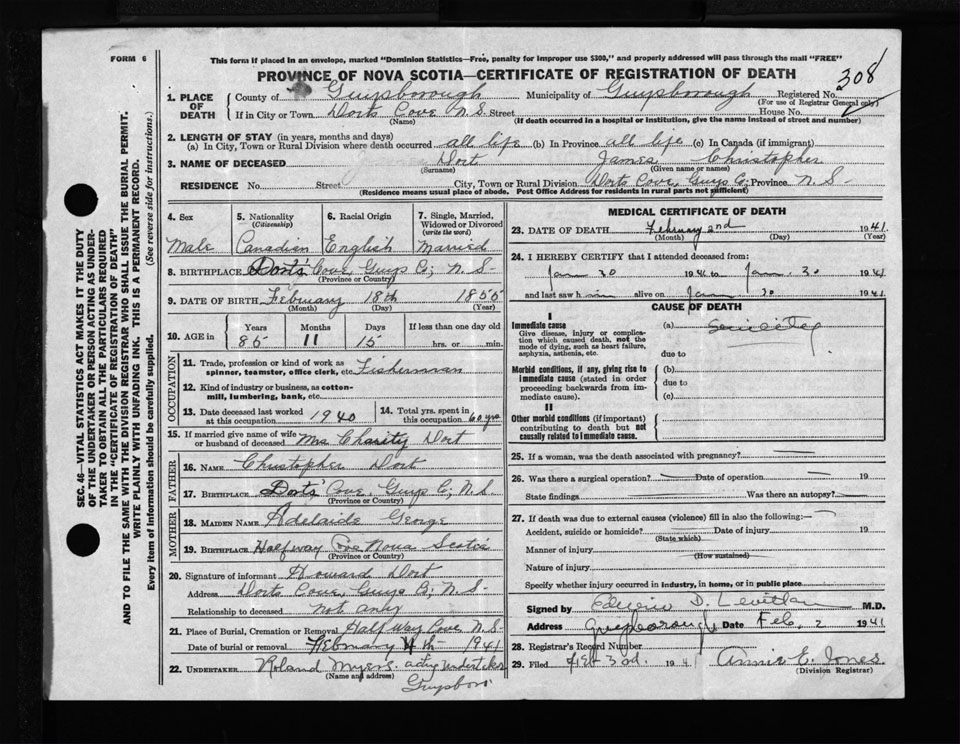 FORM 6
This form if placed in an envelope, marked "Dominion Statistics—Free, penalty for improper use $300," and properly addressed will pass through the mail "FREE"
PROVINCE OF NOVA SCOTIA—CERTIFICATE OF REGISTRATION OF DEATH
308
1. PLACE OF DEATH
County of Guysborough Municipality of Guysborough Registered No.
(For use of Registrar General only)
If in City or Town Dorts Cove N.S. Street House No.
(Name) (If death occurred in a hospital or institution, give the name instead of street and number)
2. LENGTH OF STAY (in years, months and days)
(a) In City, Town or Rural Division where death occurred all life (b) In Province all life (c) In Canada (if immigrant)
3. NAME OF DECEASED Dort James Christopher
(Surname) (Given name or names)
RESIDENCE No. Street City, Town or Rural Division Dorts Cove, Guys Co; Province N.S-
(Residence means usual place of abode. Post Office Address for residents in rural parts not sufficient)
4. Sex 5. Nationality (Citizenship) 6. Racial Origin 7. Single, Married, Widowed or Divorced (write the word)
Male Canadian English Married
8. BIRTHPLACE Dorts' Cove, Guys Co; N.S-
(Province or Country)
9. DATE OF BIRTH February 18th 1855
(Month) (Day) (Year)
10. AGE in Years Months Days If less than one day old
85 11 15 hrs. or min.
OCCUPATION
11. Trade, profession or kind of work as spinner, teamster, office clerk, etc. Fisherman
12. Kind of industry or business, as cotton-mill, lumbering, bank, etc.
13. Date deceased last worked at this occupation 1940 14. Total yrs. spent in this occupation 60 yrs
15. If married give name of wife or husband of deceased Mrs Charity Dort
FATHER
16. NAME Christopher Dort
17. BIRTHPLACE Dorts' Cove, Guys C; N.S
(Province or Country)
MOTHER
18. MAIDEN NAME Adelaide George
19. BIRTHPLACE Halfway Cove Nova Scotia
(Province or Country)
20. Signature of informant Howard Dort
Address Dorts Cove, Guys Co; N.S-
Relationship to deceased not any
21. Place of Burial, Cremation or Removal Half Way Cove N.S-
Date of burial or removal February 4th 1941
22. UNDERTAKER Roland Myers. acting undertaker
(Name and address)
Guysboro
MEDICAL CERTIFICATE OF DEATH
23. DATE OF DEATH February 2nd 1941
(Month) (Day) (Year)
24. I HEREBY CERTIFY that I attended deceased from:
Jan 30 1941 to Jan. 30 1941
and last saw him alive on Jan 30 1941
CAUSE OF DEATH
I
Immediate cause (a)
Give disease, injury or complication which caused death, not the mode of dying, such as heart failure, asphyxia, asthenia, etc.
due to
Morbid conditions, if any, giving rise to immediate cause (stated in order proceeding backwards from immediate cause).
(b)
due to
(c)
II
Other morbid conditions (if important) contributing to death but not causally related to immediate cause.
25. If a woman, was the death associated with pregnancy?
26. Was there a surgical operation? Date of operation 19
State findings Was there an autopsy?
27. If death was due to external causes (violence) fill in also the following:—
Accident, suicide or homicide? Date of injury 19
(State which)
Manner of injury
(How sustained)
Nature of injury
Specify whether injury occurred in industry, in home, or in public place
Signed by D. M.D.
Address Guysborough Date Feb. 2 1941
28. Registrar's Record Number
29. Filed Feb 3rd. 1941 Annie E. Jones
(Division Registrar)
SEC. 46—VITAL STATISTICS ACT MAKES IT THE DUTY
OF THE UNDERTAKER OR PERSON ACTING AS UNDER-
TAKER TO OBTAIN ALL THE PARTICULARS REQUIRED
IN THE "CERTIFICATE OF REGISTRATION OF DEATH"
AND TO FILE THE SAME WITH THE DIVISION REGISTRAR WHO SHALL ISSUE THE BURIAL PERMIT.
WRITE PLAINLY WITH UNFADING INK. THIS IS A PERMANENT RECORD.
Every item of Information should be carefully supplied. (See reverse side for instructions.)